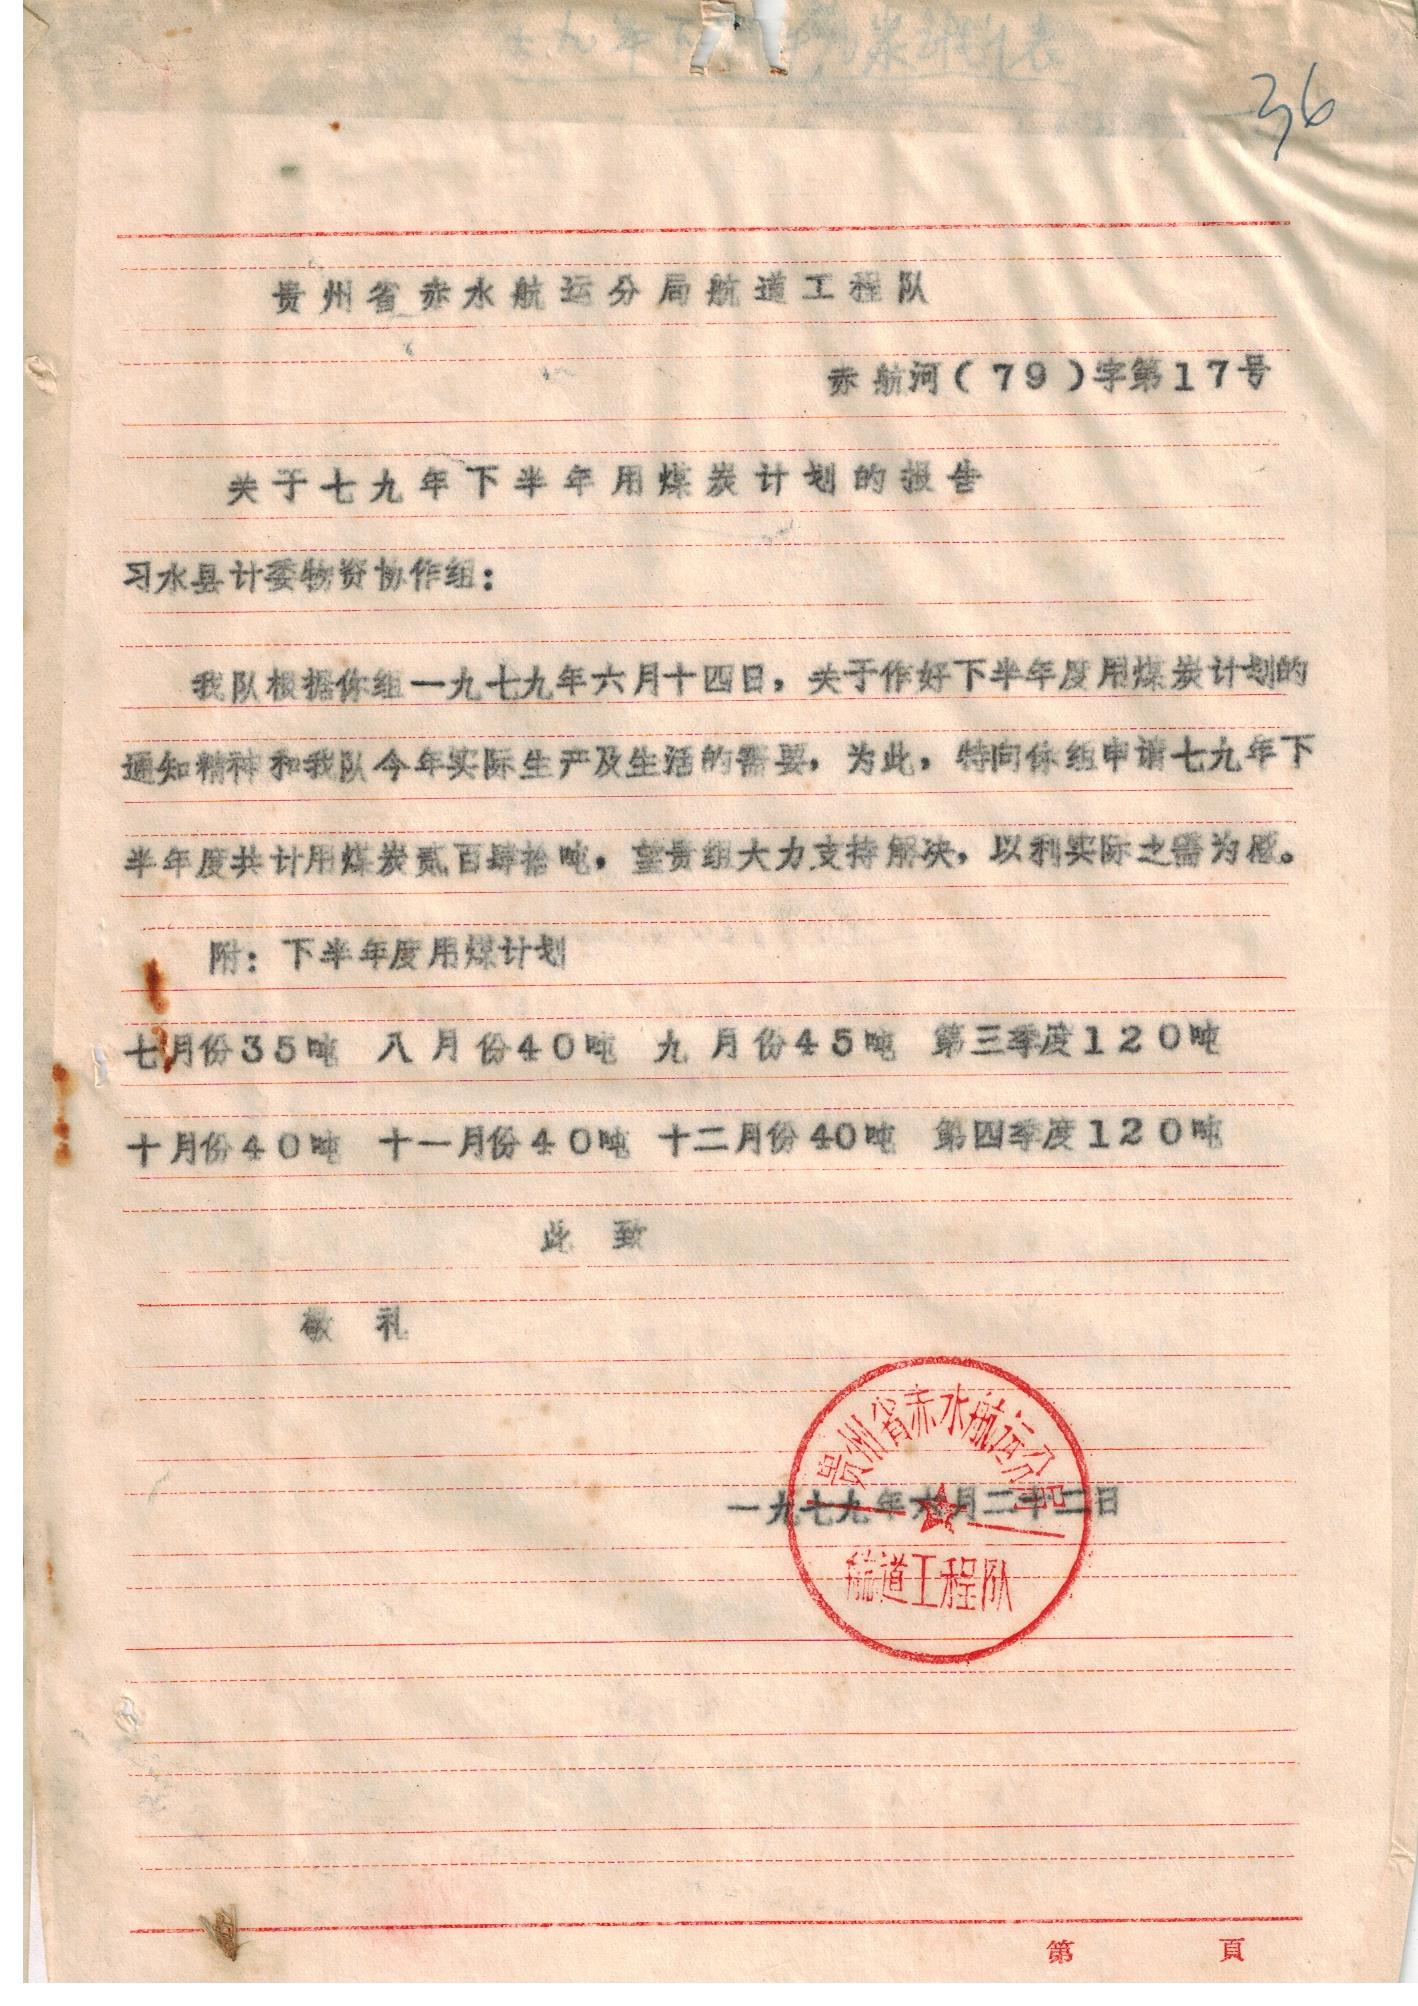 36
贵州省赤水航运分局航道工程队
赤航河(79)字第17号
关于七九年下半年用煤炭计划的报告
习水县计委物资协作组:
我队根据你组一九七九年六月十四日,关于作好下半年度用煤炭计划的
通知精神和我队今年实际生产及生活的需要,为此,特向你组申请七九年下
半年度共计用煤炭贰百肆拾吨,望贵组大力支持解决,以利实际之需为感。
附:下半年度用煤计划
七月份35吨 八月份40吨 九月份45吨 第三季度120吨
十月份40吨 十一月份40吨 十二月份40吨 第四季度120吨
此 致
敬 礼
贵州省赤水航运分局
一九七九年六月二十二日
航道工程队
第 頁